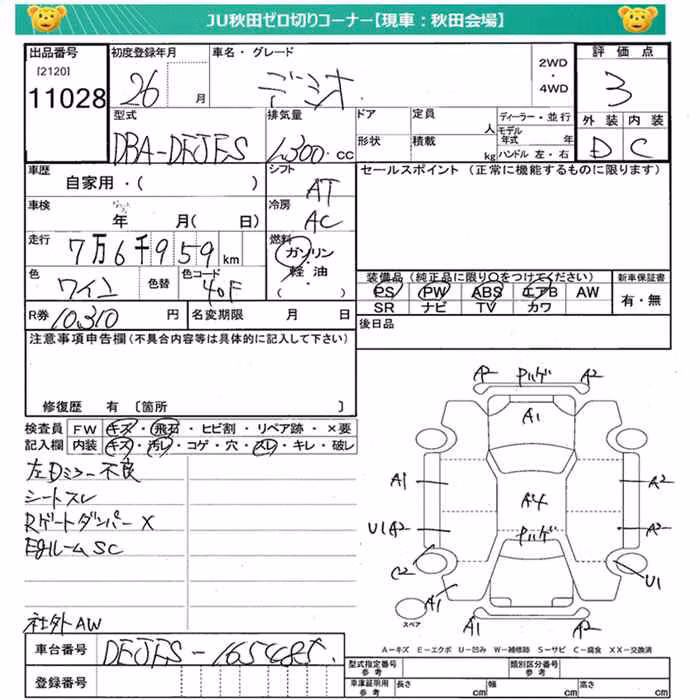 JU秋田ゼロ切りコーナー【現車：秋田会場】
出品番号 初度登録年月 車名・グレード 評価点
[2120]
11028 26 月 デミオ 2WD・4WD 3
型式 排気量 ドア 定員 人 ディーラー・並行 外装 内装
DBA-DEJFS 1,300 cc 形状 積載 kg モデル年式 年 ハンドル 左・右 D C
車歴 シフト セールスポイント（正常に機能するものに限ります）
自家用・( ) AT
車検 年 月( 日) 冷房 AC
走行 7万6千959km 燃料 ガソリン・軽油・( )
色 ワイン 色替 色コード 40F
装備品（純正品に限り○をつけてください） 新車保証書
PS PW ABS エアB AW 有・無
SR ナビ TV カワ
R券 10,310 円 名変期限 月 日 後日品
注意事項申告欄（不具合内容等は具体的に記入して下さい）
修復歴 有〔箇所 〕
検査員 FW キズ・飛石・ヒビ割・リペア跡・×要
記入欄 内装 キズ・汚レ・コゲ・穴・スレ・キレ・破レ
左Dミラー不良
シートスレ
Rゲートダンパー X
Egルーム SC
社外AW
A2 Pハゲ A2
A1
A1 A4 A2
U1 A2 Pハゲ A2
C2 U1
A1
A1 A2
スペア
A-キズ E-エクボ U-凹み W-補修跡 S-サビ C-腐食 XX-交換済
車台番号 DEJFS-165485
登録番号
型式指定番号 参考 類別区分番号 参考
車庫証明用 参考 長さ cm 幅 cm 高さ cm